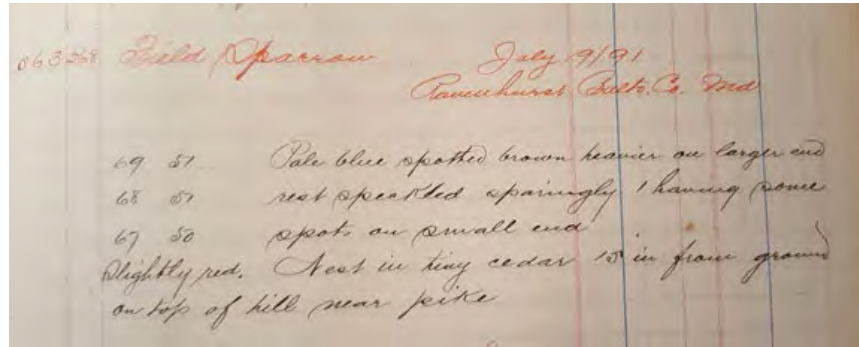 063 268 Field Sparrow July 19/91
Ravenhurst Balto. Co. Md
69 51 Pale blue spotted brown heavier on larger end
68 51 rest speckled sparingly 1 having some
67 50 spots on small end
Slightly red. Nest in tiny cedar 15 in from ground
on top of hill near pike